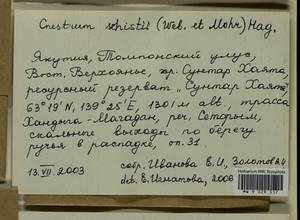 Cnestrum schistii (Web. et Mohr) Hag.
Якутия, Томпонский улус,
Вост. Верхоянье, хр. Сунтар Хаята,
ресурсный резерват "Сунтар Хаята",
63°19'N, 139°25'E, 1301 м alt., трасса
Хандыга - Магадан, реч. Сетрым,
скальные выходы по берегу
ручья в распадке, оп. 31.
13.VII.2003
собр. Иванова Е.И., Золотов В.И.
det. Е. Игнатова, 2006